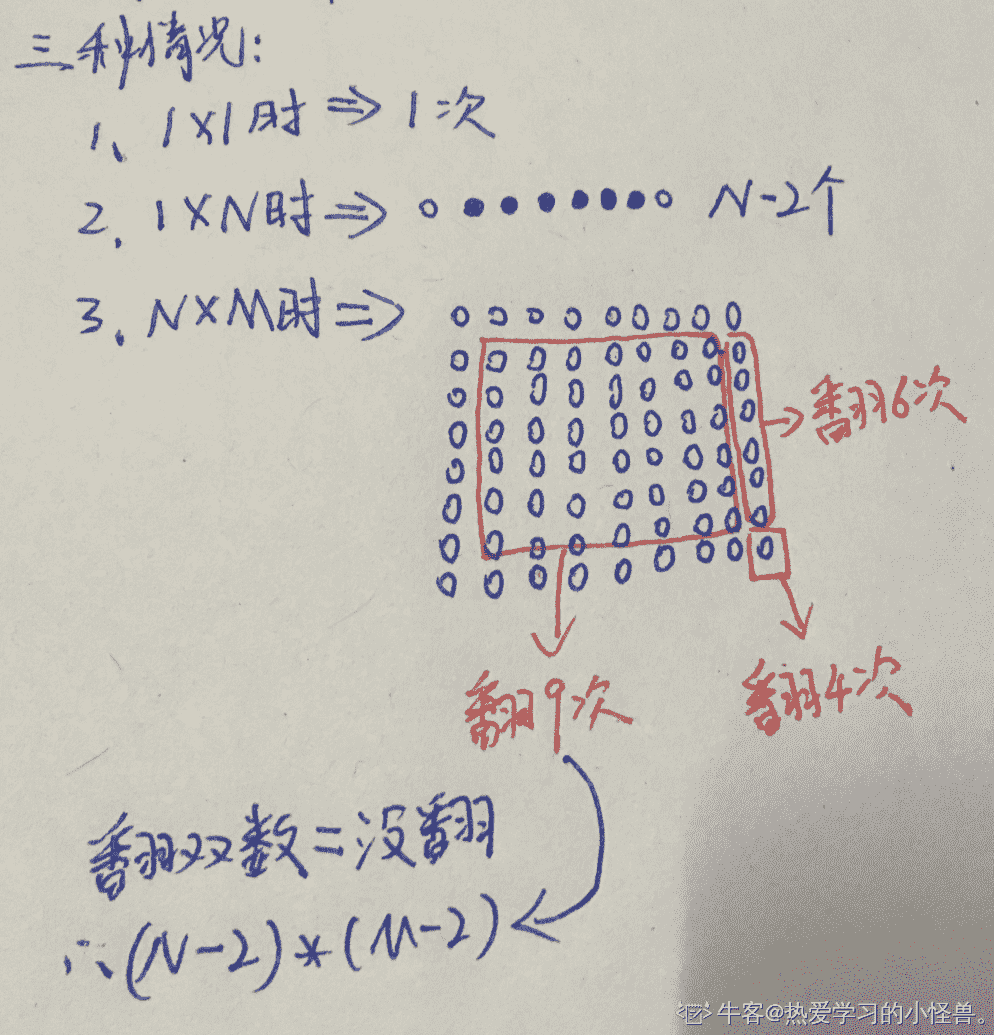 三种情况:
1、1×1时⇒1次
2、1×N时⇒ N-2个
3、N×M时⇒
翻6次
翻9次
翻4次
翻双数=没翻
∴(N-2)*(M-2)
牛客@热爱学习的小怪兽。